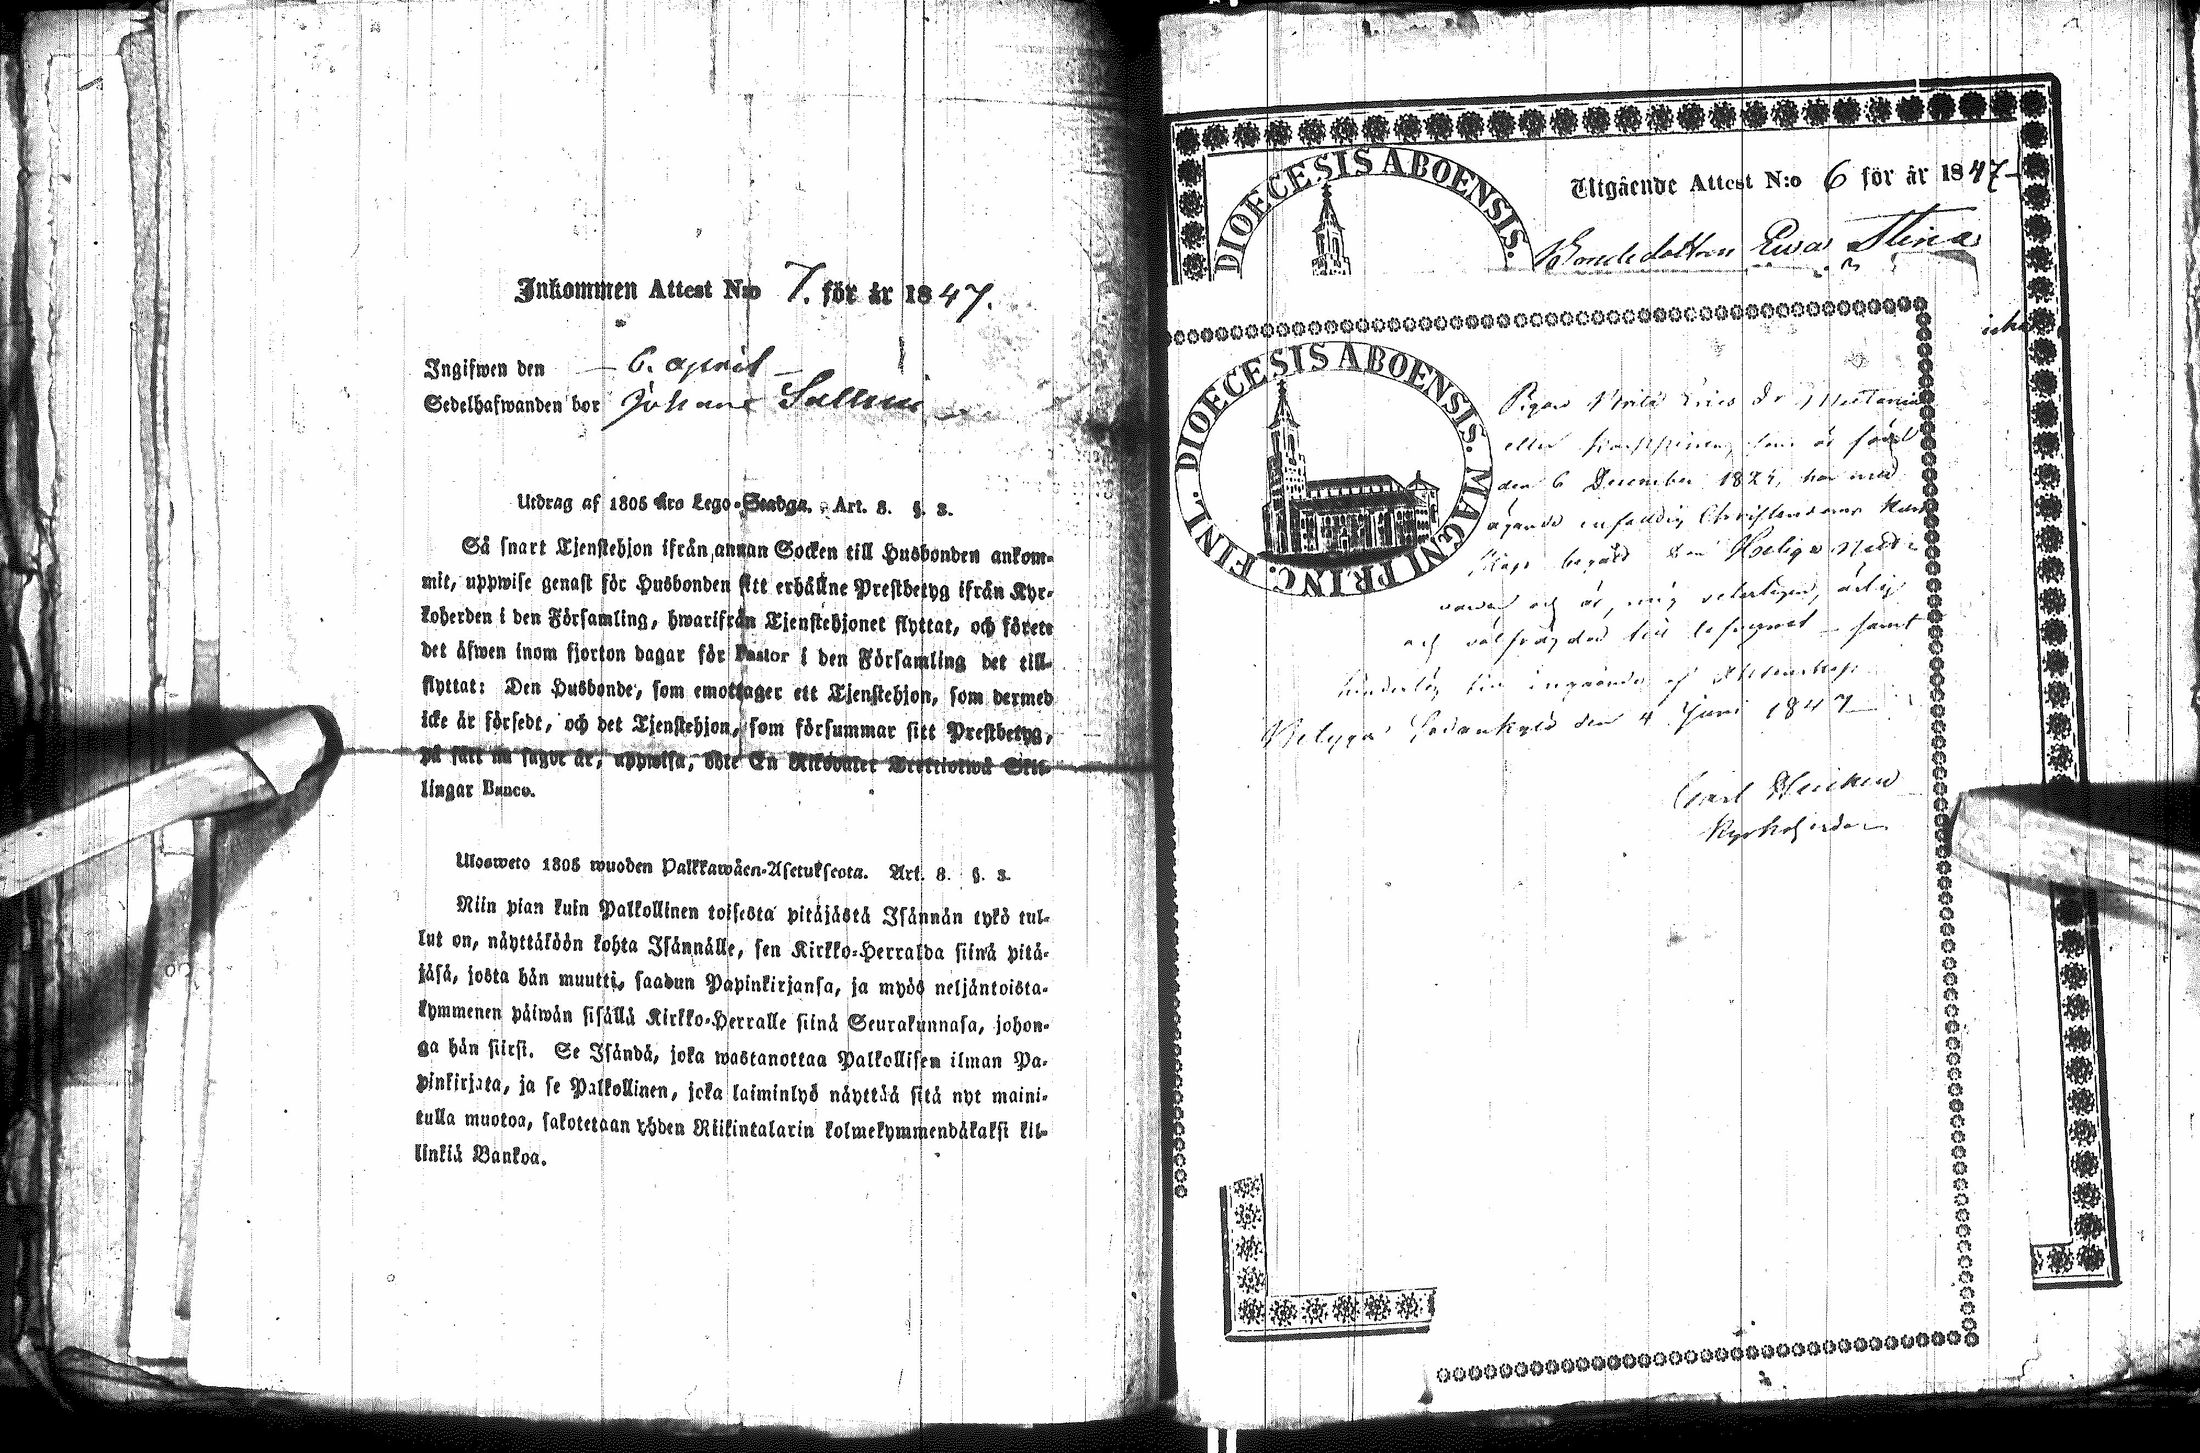 Inkommen Attest N:o 7. för år 1847.
Ingifwen den — 6. april —
Sedelhafwanden bor Johans
Utdrag af 1805 års Lego-Stadga. Art. 8. §. 3.
Så snart Tjenstehjon ifrån annan Socken till Husbonden ankom-
mit, uppwise genast för Husbonden sitt erhållne Prestbetyg ifrån Kyr-
koherden i den Församling, hwarifrån Tjenstehjonet flyttat, och förete
det äfwen inom fjorton dagar för Pastor i den Församling det till-
flyttat: Den Husbonde, som emottager ett Tjenstehjon, som dermed
icke är försedt, och det Tjenstehjon, som försummar sitt Prestbetyg,
på sätt nu sagdt är, uppwisa, böte En Riksdaler Trettiotwå Skil-
lingar Banco.
Ulosweto 1805 wuoden Palkkawäen-Asetuksesta. Art. 8. §. 3.
Niin pian kuin Palkollinen toisesta pitäjästä Isännän tykö tul-
lut on, näyttäköön kohta Isännälle, sen Kirkko-Herralda siinä pitä-
jäsä, josta hän muutti, saadun Papinkirjansa, ja myös neljäntoista-
kymmenen päiwän sisällä Kirkko-Herralle siinä Seurakunnasa, johon-
ga hän siirsi. Se Isändä, joka wastanottaa Palkollisen ilman Pa-
pinkirjata, ja se Palkollinen, joka laiminlyö näyttää sitä nyt maini-
tulla muotoa, sakotetaan yhden Riikintalarin kolmekymmendäkaksi kil-
linkiä Bankoa.
DIOECESIS ABOENSIS.
Utgående Attest N:o 6 för år 1847
Bondedottren Ewa Stina
DIOECESIS ABOENSIS. MAGNI PRINC. FINL.
Pigan Eriks Dr
eller som är född
den 6 December 182 har med
ägande enfaldig Christendoms Kun
skap begått den Heliga Natt-
vard och är, mig veterligen, ärlig
och välfrägdad till lefvernet samt
hinderlös till ingående af Äktenskap.
Betygar Sodankylä den 4 Juni 1847
Carl Heickell
Kyrkoherde